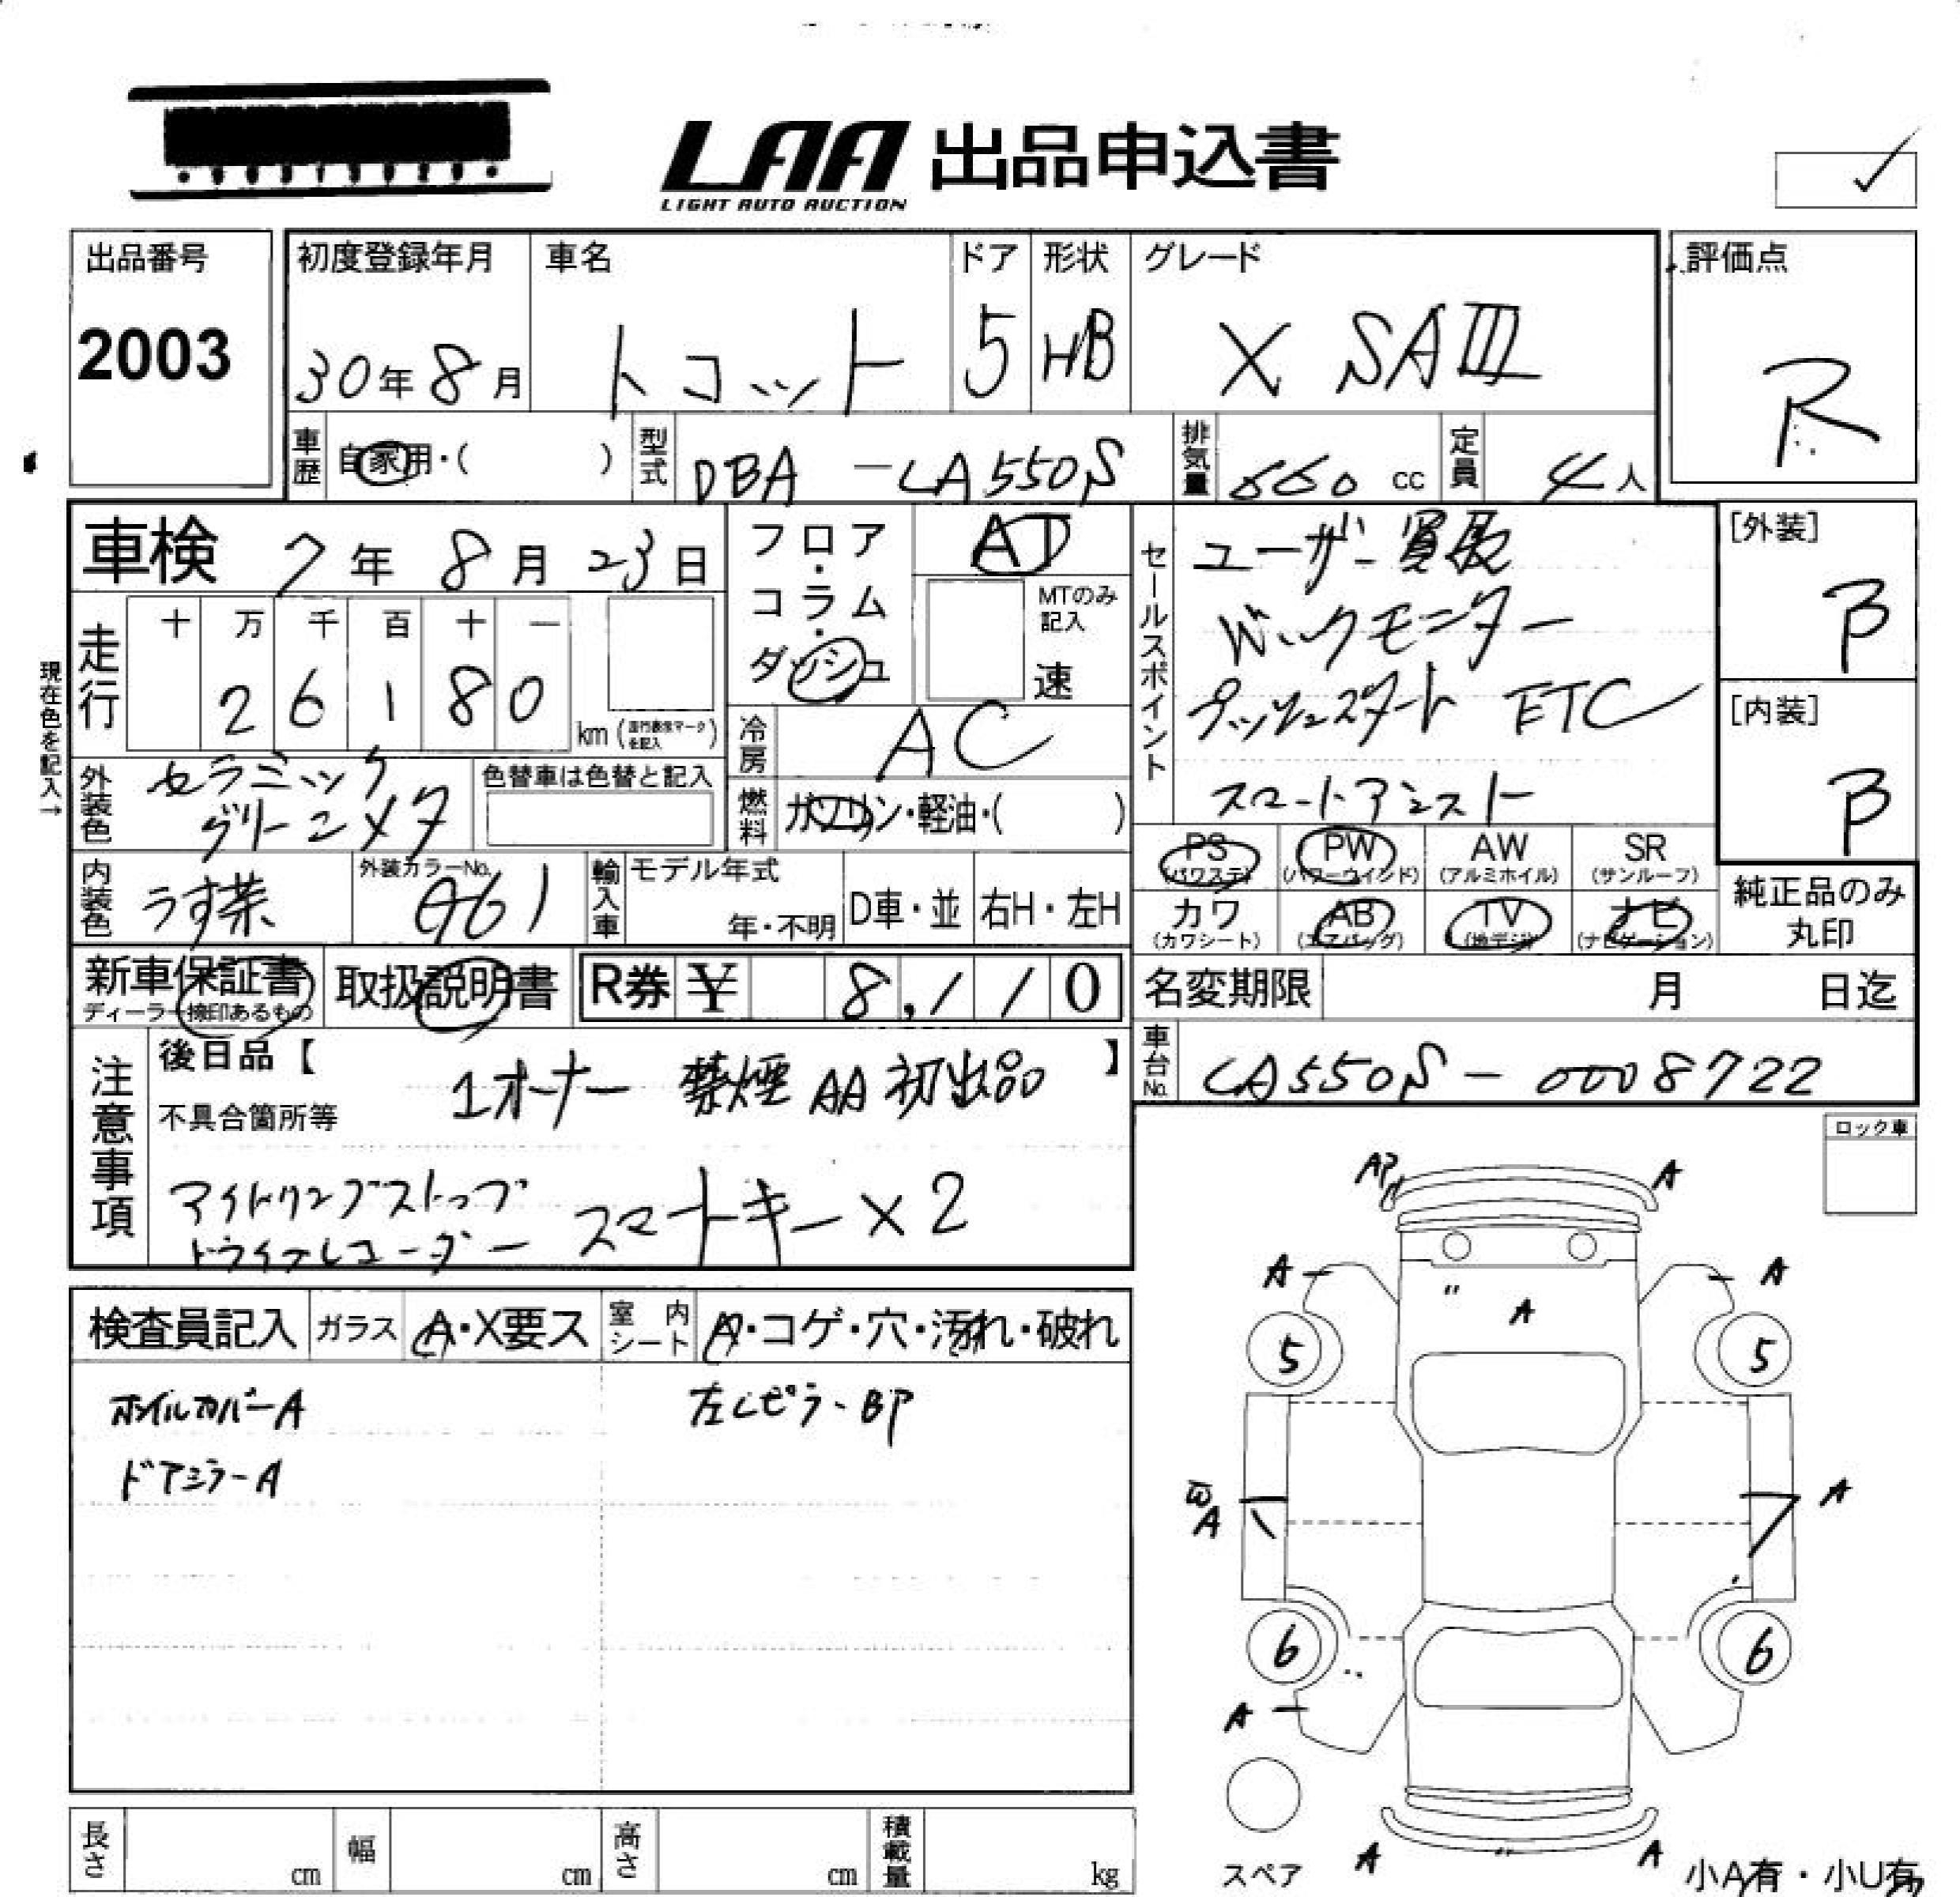 LAA 出品申込書
LIGHT AUTO AUCTION
出品番号
2003
初度登録年月
30年8月
車名
トコット
ドア
5
形状
HB
グレード
X SAIII
評価点
R
車歴
自家用・( )
型式
DBA -LA550S
排気量
660 cc
定員
4人
車検 7年 8月 23日
フロア・コラム・ダッシュ
AT
MTのみ記入
速
セールスポイント
ユーザー買取
Wックモニター
プッシュスタート ETC
スマートアシスト
[外装]
β
[内装]
β
現在色を記入→
走行
十 万 千 百 十 一
2 6 1 8 0
km (走行表示マークを記入)
冷房
AC
外装色
セラミック
グリーンメタ
色替車は色替と記入
燃料
ガソリン・軽油・( )
PS (パワステ)
PW (パワーウインド)
AW (アルミホイル)
SR (サンルーフ)
内装色
うす茶
外装カラーNo.
G61
輸入車
モデル年式
年・不明
D車・並
右H・左H
カワ (カワシート)
AB (エアバッグ)
TV (地デジ)
ナビ (ナビゲーション)
純正品のみ
丸印
新車保証書
ディーラー捺印あるもの
取扱説明書
R券 ¥ 8,110
名変期限 月 日迄
注意事項
後日品【 】
1オーナー 禁煙 AA初出品
不具合箇所等
アイドリングストップ
ドライブレコーダー
スマートキー×2
車台No.
LA550S-0008722
ロック車
検査員記入
ガラス A・X要ス
室内シート A・コゲ・穴・汚れ・破れ
ホイルカバーA
左Cピラー BP
ドアミラーA
AP
A
A
A
〃
A
5
5
A
A
6
6
A
A
〃
A
スペア
小A有・小U有
長さ cm
幅 cm
高さ cm
積載量 kg